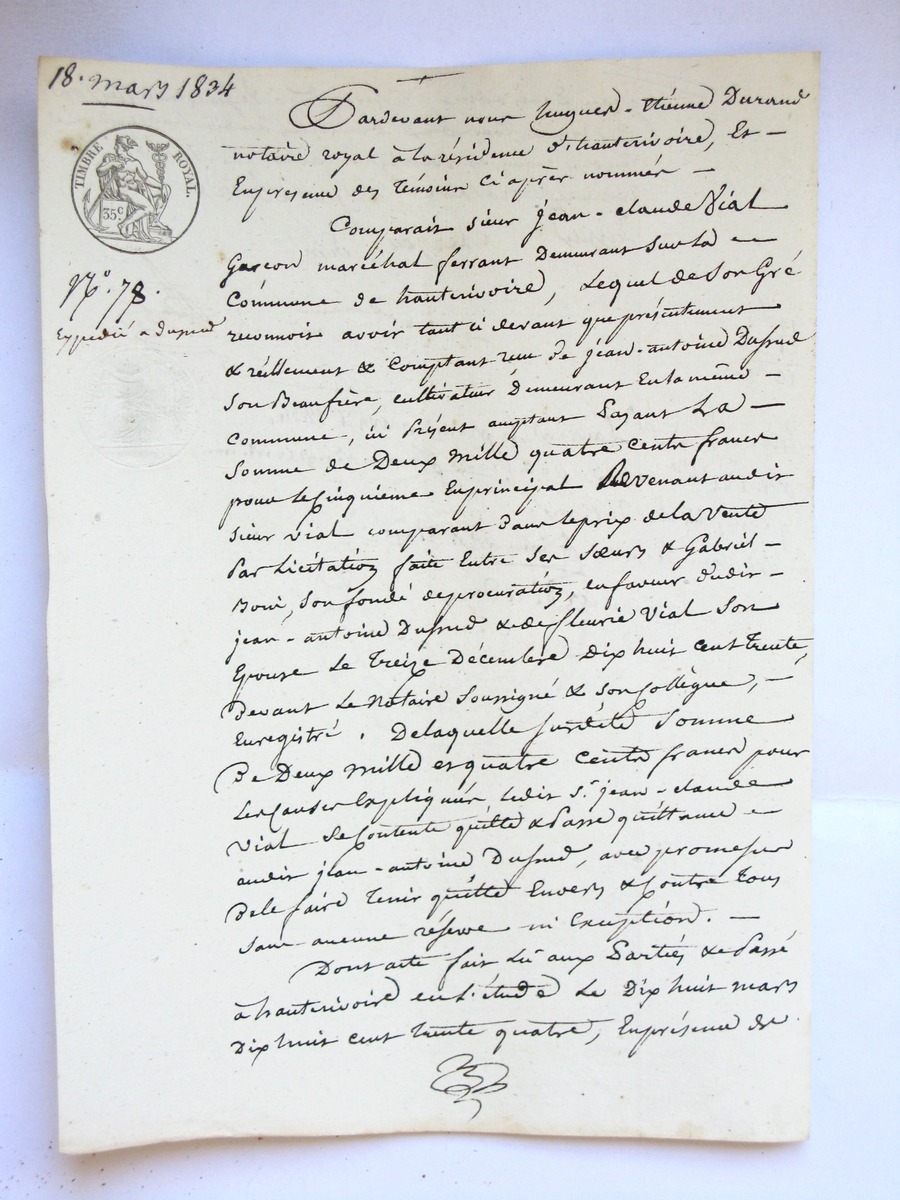 18. mars 1834
TIMBRE ROYAL.
35c
N.° 78.
Expedié a dusud
Pardevant nous hugues-étienne Durand
notaire royal à la résidence d'hauterivoire, Et
En présence des Témoins ci après nommés
Comparait sieur jean-claude Vial
Garçon maréchal ferrant Demeurant Sur La
Commune de hauterivoire, Lequel de Son Gré
reconnoit avoir tant ci devant que présentement
& réellement & Comptant reçu de jean-antoine
Son Beaufrère, cultivateur Demeurant En la même
Commune, ici présent acceptant Payant La
Somme de Deux mille quatre cents francs
pour le Cinquième En principal Revenant audit
Sieur Vial comparant dans le prix de la Vente
Par Licitation faite Entre Ses Sœurs & Gabriel
son fondé de procuration, en faveur dudit
jean-antoine & de fleurie Vial Son
Epouse Le Treize Décembre Dix huit cent trente,
Devant Le Notaire Soussigné & Son Collègue,
Enregistré. De laquelle Susdite Somme
De Deux mille et quatre Cents francs pour
Les Causes Expliquées, Ledit S.r jean-claude
Vial Se Contente quitte & Passe quittance
audit jean-antoine, avec promesse
De le faire Tenir quitte Envers & Contre Tous
Sans aucune réserve ni Exception.
Dont acte fait Lu aux Parties & Passé
à hauterivoire en L'étude Le Dix huit mars
Dix huit cent trente quatre, En présence de